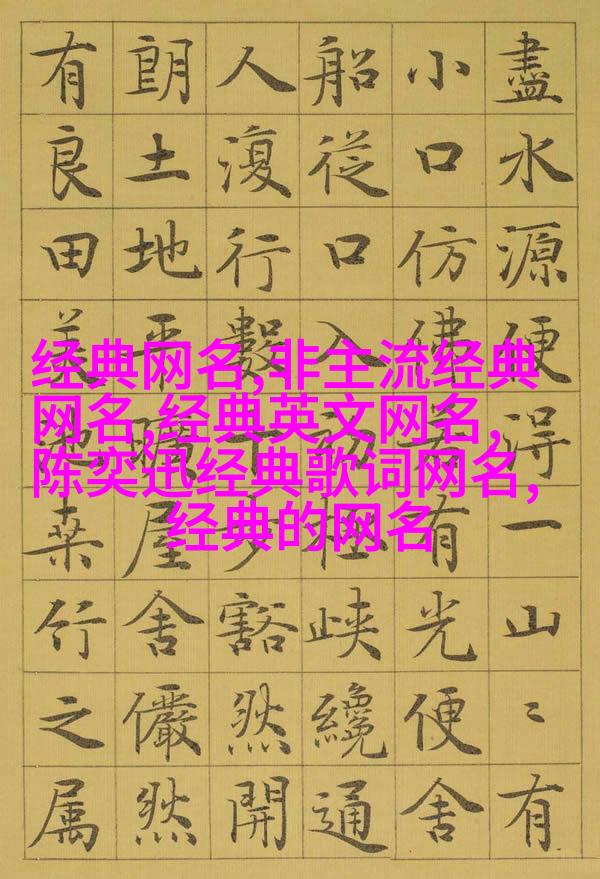 盡水源便得一山〻有
小口仿佛若有光便舍
船從口入初極峽纔通
人復行數十步豁然開
朗土地平曠屋舍儼然
有良田美池桑竹之属
经典网名,非主流经典
网名,经典英文网名,
陈奕迅经典歌词网名,
经典的网名